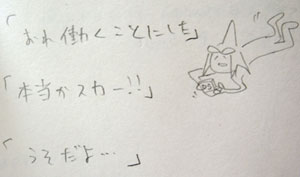 「おれ働くことにした」
「本当かスカー!!」
「うそだよ…」